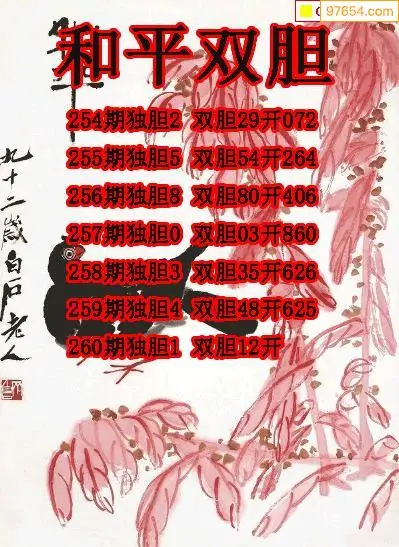 97654.com
和平双胆
254期独胆2 双胆29开072
255期独胆5 双胆54开264
256期独胆8 双胆80开406
257期独胆0 双胆03开860
258期独胆3 双胆35开626
259期独胆4 双胆48开625
260期独胆1 双胆12开
九十二歲白石老人